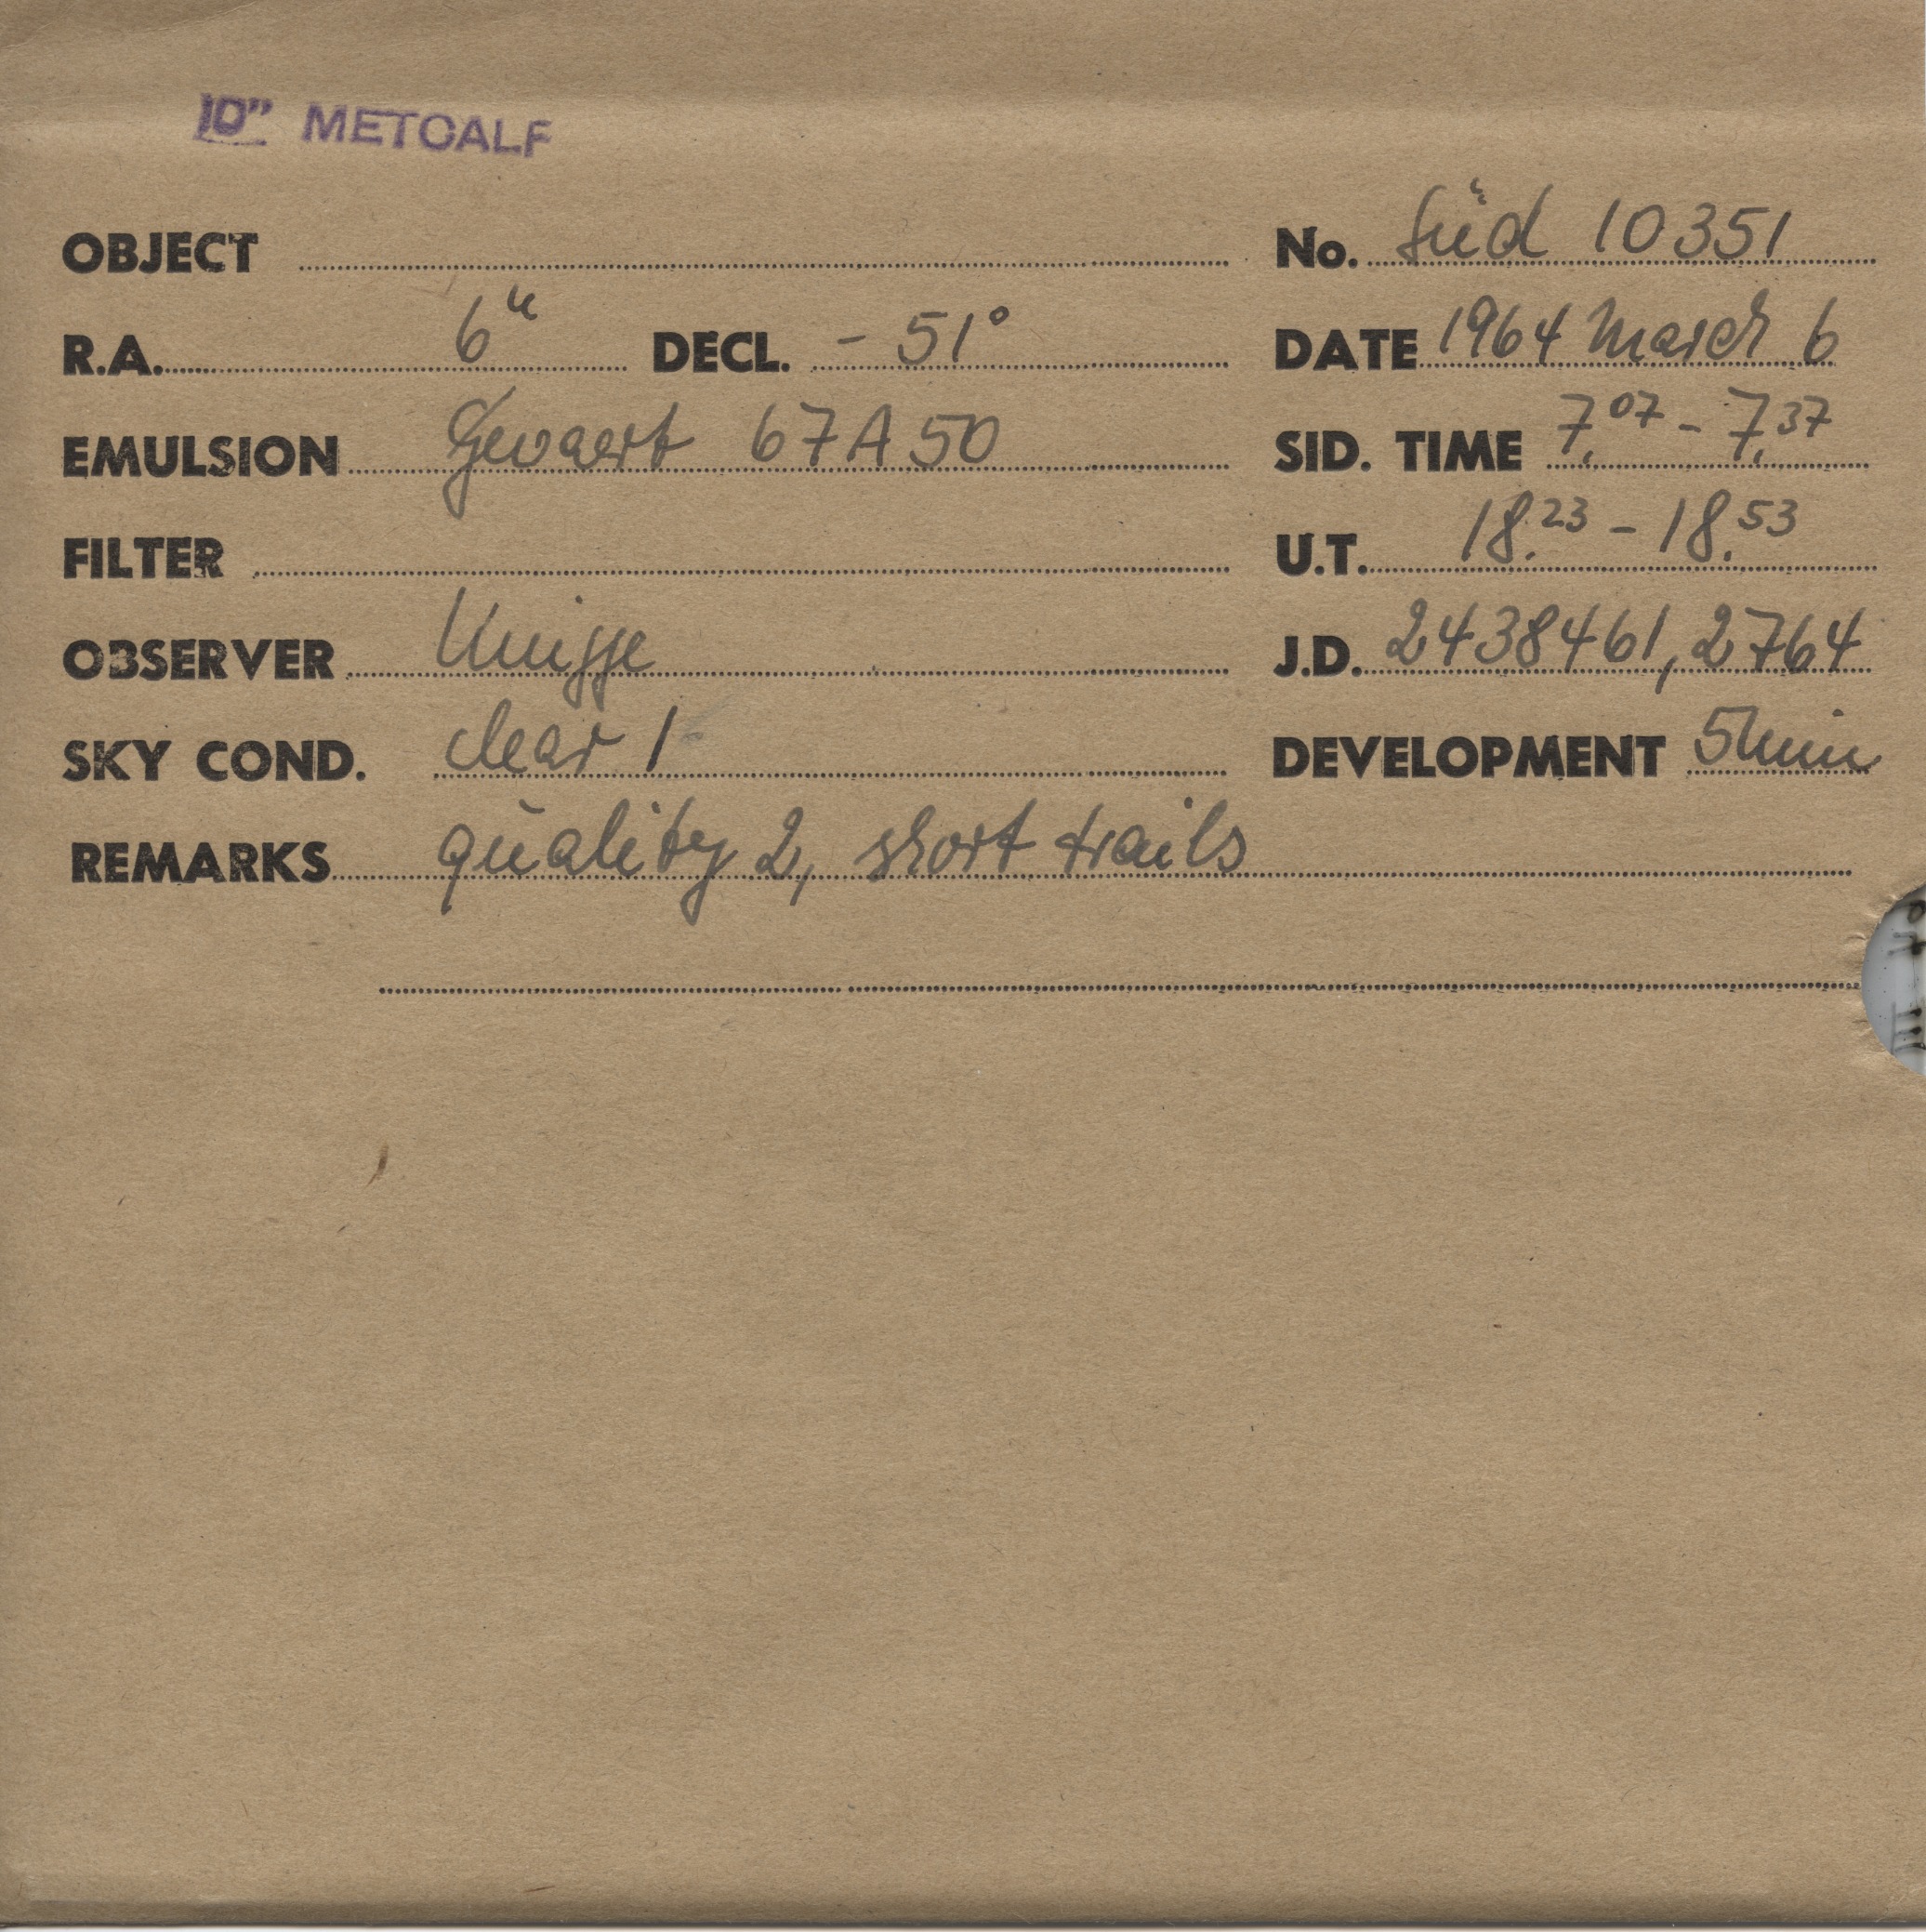 10" METCALF
OBJECT No. Süd 10351
R.A. 6h DECL. - 51° DATE 1964 March 6
EMULSION Gevaert 67A50 SID. TIME 7.07 - 7.37
FILTER U.T. 18.23 - 18.53
OBSERVER Knigge J.D. 2438461,2764
SKY COND. clear 1 DEVELOPMENT 5 min
REMARKS quality 2, short trails